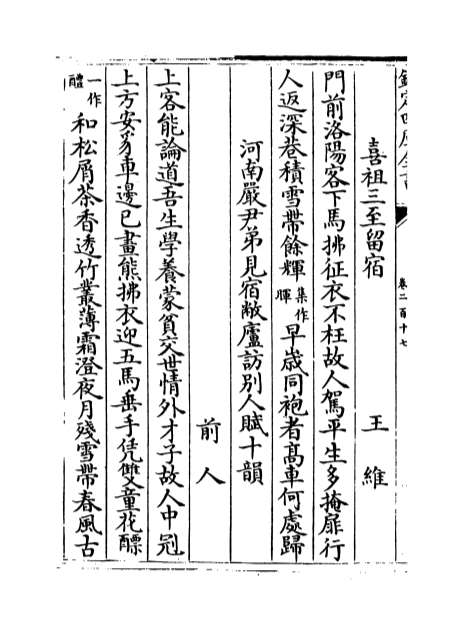 欽定四庫全書
卷二百十七
喜祖三至留宿
王維
門前洛陽客下馬拂征衣不枉故人駕平生多掩扉行
人返深巷積雪帶餘輝集作暉早歲同袍者高車何處歸
河南嚴尹弟見宿敝廬訪別人賦十韻
前人
上客能論道吾生學養蒙貧交世情外才子故人中冠
上方安豸車邊已畫熊拂衣迎五馬垂手凭雙童花醥
一作醴和松屑茶香透竹叢薄霜澄夜月殘雪帶春風古